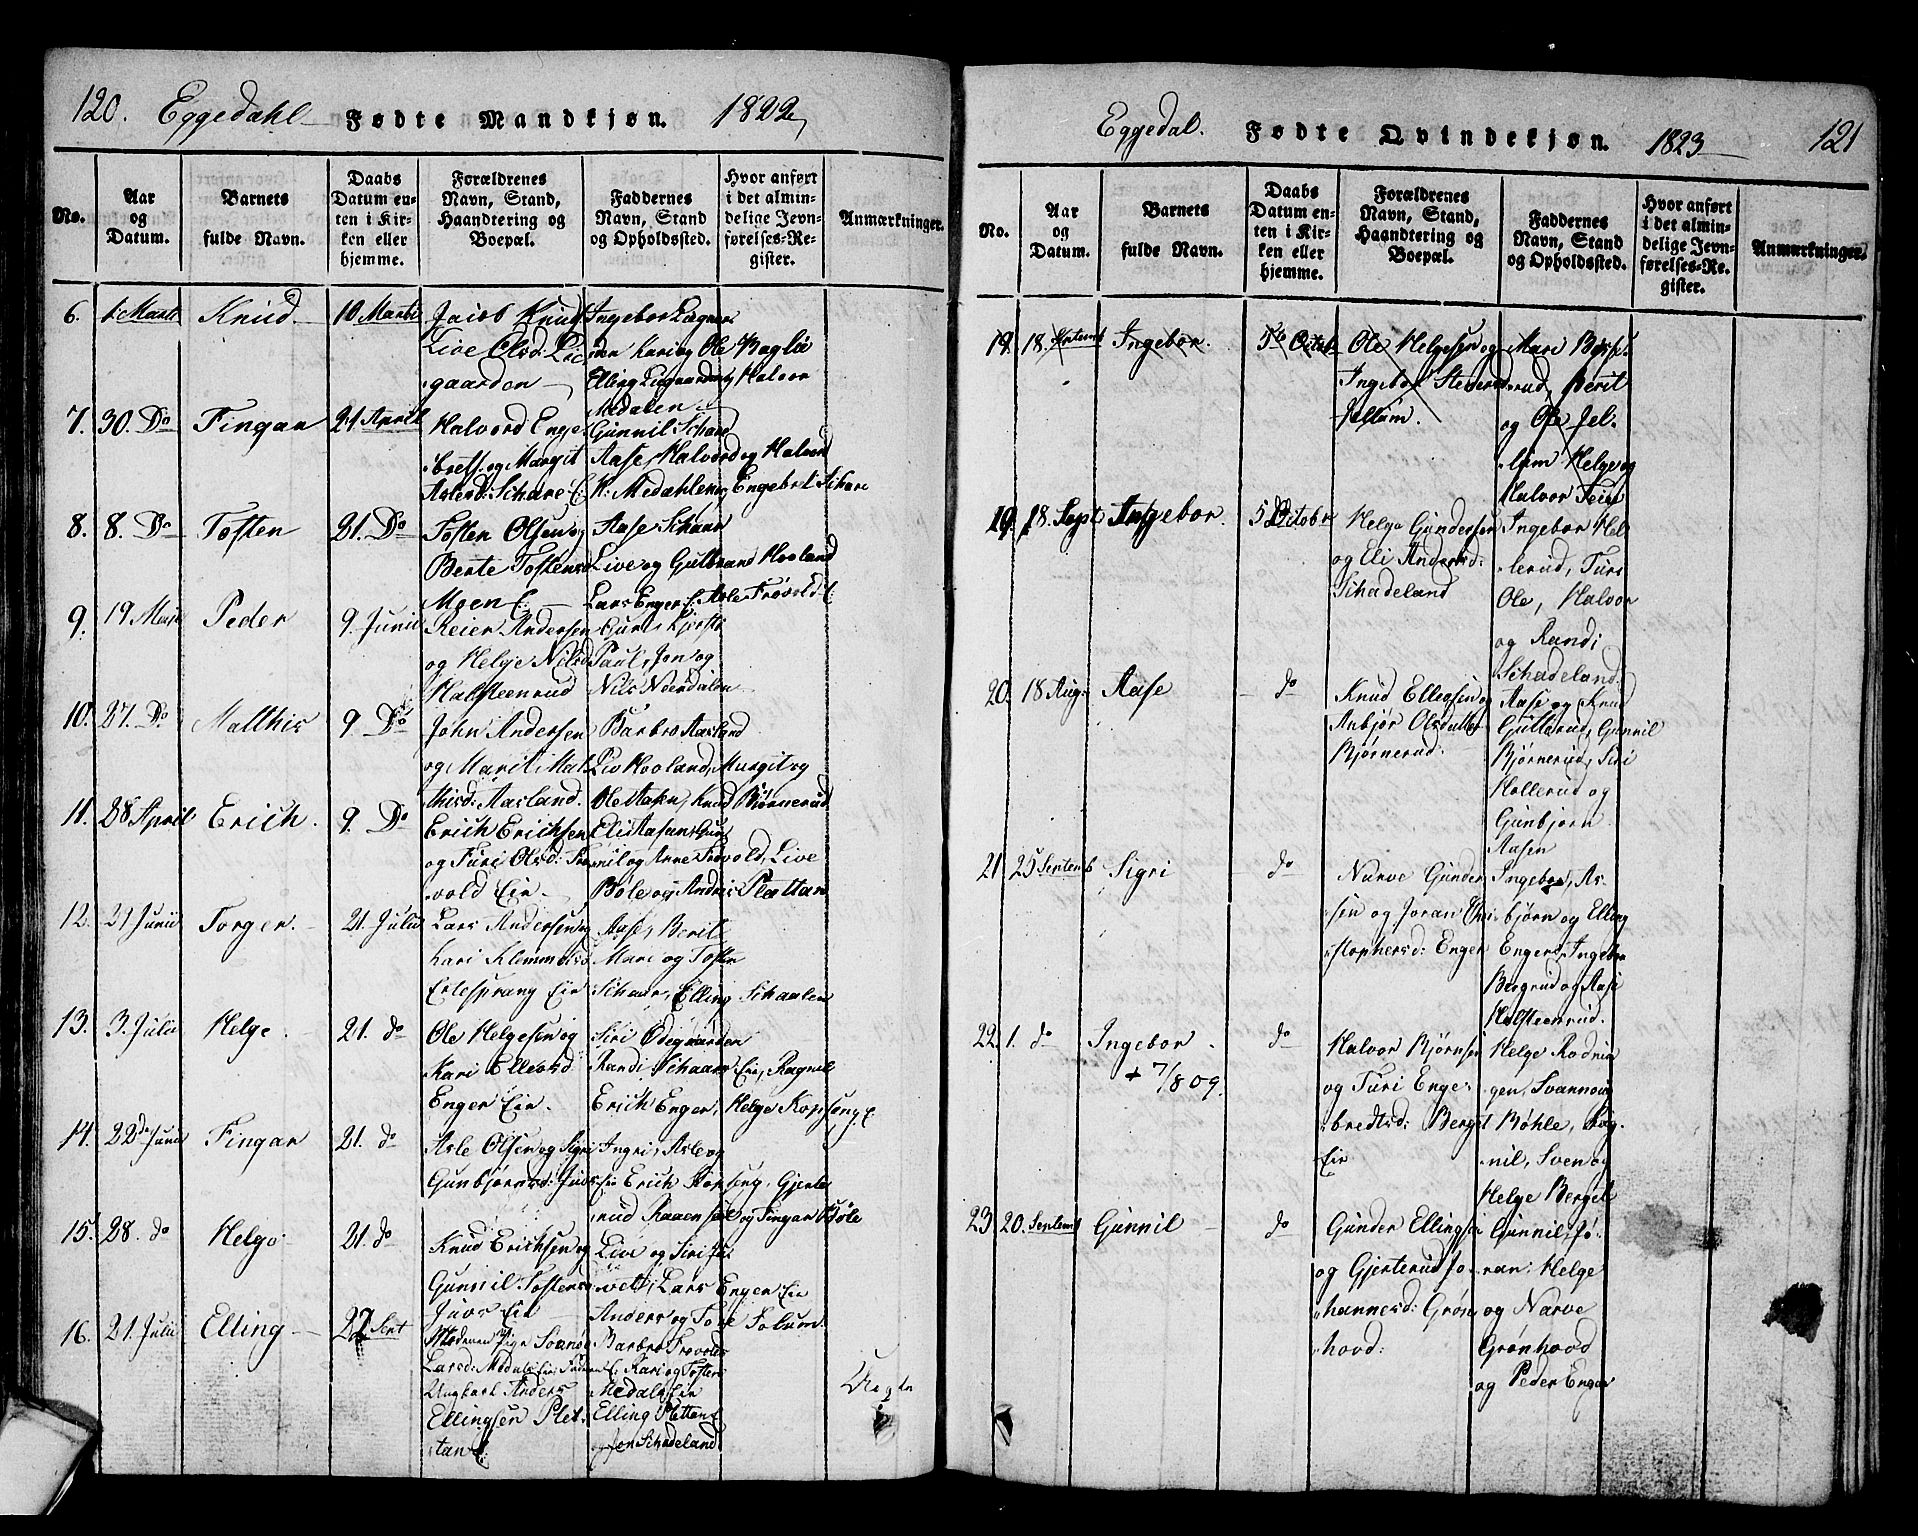 120. Eggedahl Fødte Mandkjøn. 1822
No.
Aar
og
Datum.
Barnets
fulde Navn.
Daabs
Datum en-
ten i Kir-
ken eller
hjemme.
Forældrenes
Navn, Stand,
Haandtering og
Boepæl.
Faddernes
Navn, Stand
og Opholdssted.
Hvor anført
i det almin-
delige Jevn-
førelses-Re-
gister.
Anmærkninger.
6. 1. Marti Knud 10 Marti
Jacob Knuds
Live Olsd:
gaarden
Ingebor
Kari og Ole Baglie
Elling og Halvor
Medalen
7. 30. Do Fingar 21 April
Halvord Enge
bretsg. og Margit
Aslesd: Schare E:
Gunnil Schare
Aase, Halvord og Halvord
K: Medahlen og Engebret Schare
8. 8. Do Tosten 21. Do
Tosten Olsen og
Berte Tostensd
Moen E:
Aase Schaar
Live og Gulbrand Hooland
Lars Enger E: Asle Frøvold E:
9. 19 Peder 9. Junii
Reier Andersen
og Helge Nilsd
Halsteenrud
Guri, Kjersti
Paul, Jon og
Nils Neerdalen
10. 27. Do Matthis 9 Do
John Andersen
og Marit Mat
thisd: Aasland.
Barbro Aasland
Liv Hooland, Margit og
Ole Aasen, Knud Bjørnerud
11. 28 April Erich. 9. Do
Erich Erichsen
og Turi Olsd: Frø
vold Eie
Eli Aasen, Gun
nil og Anne Frøvold, Live
Bøle og Andris Plattan
12. 21 Junii Torger. 21. Julii
Lars Andersen og
Kari Klemmetsd
Erlesprang Eie
Aase, Berit
Mari og Tosten
Schaar, Elling Schaalen
13. 3. Julii Helge. 21. do
Ole Helgesen og
Kari Ellevsd
Enger Eie.
Siri Ødegaarden
Randi Schaar Eie, Ragnil
Erich Enger, Helge Kopseng E.
14. 22de Junii Fingar 21. do
Asle Olsen og Sigri
Gunbjørnsd: Juvs Eie
Ingri, Asle og
Erich Kopseng, Gjerte
nud Raaen og Fingar Bøle
15. 28. do Helge 21. do
Knud Erichsen og
Gunnil Tostensd
Juvs Eie
Live og Siri Ju
vet, Lars Enger Eie
Anders og Tore Solum
16. 21. Julii Elling 22 Sept
Moderen Pige
Larsd: Medals Eie: Faderen
Ungkarl Anders
Ellingsen Plet
tan E:
Barbro Frøvold
E: Kari og Tosten
Medals Eie
Elling Pletten E
og Jon Schadeland
Uægte
Eggedal. Fødte Qvindekjøn. 1823 121
No.
Aar
og
Datum.
Barnets
fulde Navn.
Daabs
Datum en-
ten i Kir-
ken eller
hjemme.
Forældrenes
Navn, Stand,
Haandtering og
Boepæl.
Faddernes
Navn, Stand
og Opholdssted.
Hvor anført
i det almin-
delige Jevn-
førelses-Re-
gister.
Anmærkninger.
19. 18. Septemb Ingebor. 5te Octob
Ole Helgesen og
Ingebor
Jellum.
Mari
rud, Berit
og Ole Jel-
lum Helge og
Halvor Teien
19. 18. Sept Ingebor. 5 Octobr
Helge Gundersen
og Eli Andersd:
Schadeland
Ingebor Hol
lerud, Turi
Ole, Halvor
og Randi
Schadeland
20. 18 Aug. Aase do
Knud Ellevsen og
Anbjør Olsdatter
Bjørnerud:
Aase og Knud
Gulterud, Gunnil
Bjørnerud, Siri
Hollerud og
Gunbjørn
Aasen
21 25 Septemb Sigri do
Narve Gunder
sen og Joran Chri
stophersd: Enger
Ingebor, As-
bjørn og Elling
Enger, Ingebor
Bergrud og Aase
Halsteenrud.
22. 1. do Ingebor do
+ 7/8 09.
Halvor Bjørnsen
og Turi Enge-
bredtsd: Bergst
Eie
Helge Rodnin
gen, Svannoug
Bøhle, Rag-
nil, Sven og
Helge Berget
23 20. Septemb Gunnil do
Gunder Ellingsen
og Gjerterud Jo-
hannesd: Grøn
hovd:
Gunnil, Jo-
ran, Helge
og Narve
Grønhovd
og Peder Enger